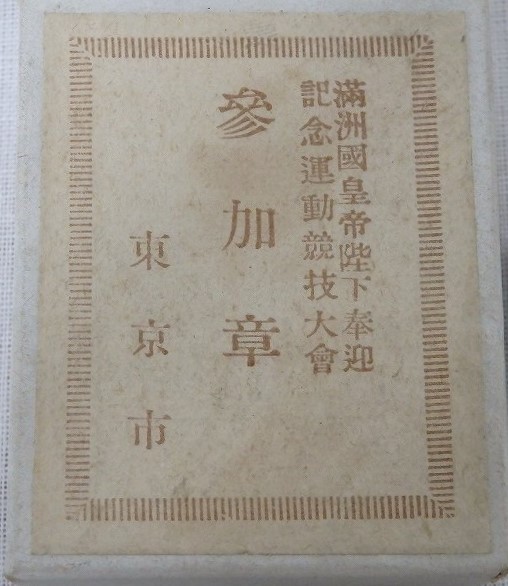 滿洲國皇帝陛下奉迎
記念運動競技大會
參加章
東京市